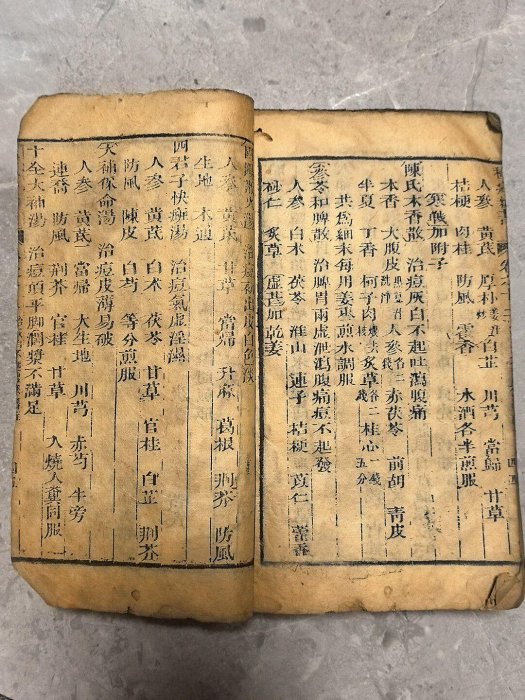 人參 黃芪 厚朴 姜汁炒 白芷 川芎 當歸 甘草
桔梗 肉桂 防風 霍香 水酒各半煎服
寒戰加附子
陳氏木香散 治痘灰白不起吐瀉腹痛
木香 大腹皮 人參 各二 赤茯苓 前胡 靑皮
半夏 丁香 柯子肉 炙草 各二 桂心 一錢五分
共爲細末每用姜棗煎水調服
參苓和脾散 治脾胃兩虛泄瀉腹痛痘不起發
人參 白木 茯苓 淮山 蓮子 桔梗 苡仁 藿香
砂仁 炙草 虛甚加乾姜
人參 黃芪 甘草 當歸 升麻 葛根 荊芥 防風
生地 木通
四君子快癍湯 治痘氣虛淫濕
人參 黃芪 白木 茯苓 甘草 官桂 白芷 荊芥
防風 陳皮 白芍 等分煎服
大補保命湯 治痘皮薄易破
人參 黃芪 當歸 大生地 川芎 赤芍 牛旁
連喬 防風 荊芥 官桂 甘草 入燒人糞同服
十全大補湯 治痘頂平脚濶漿不滿足